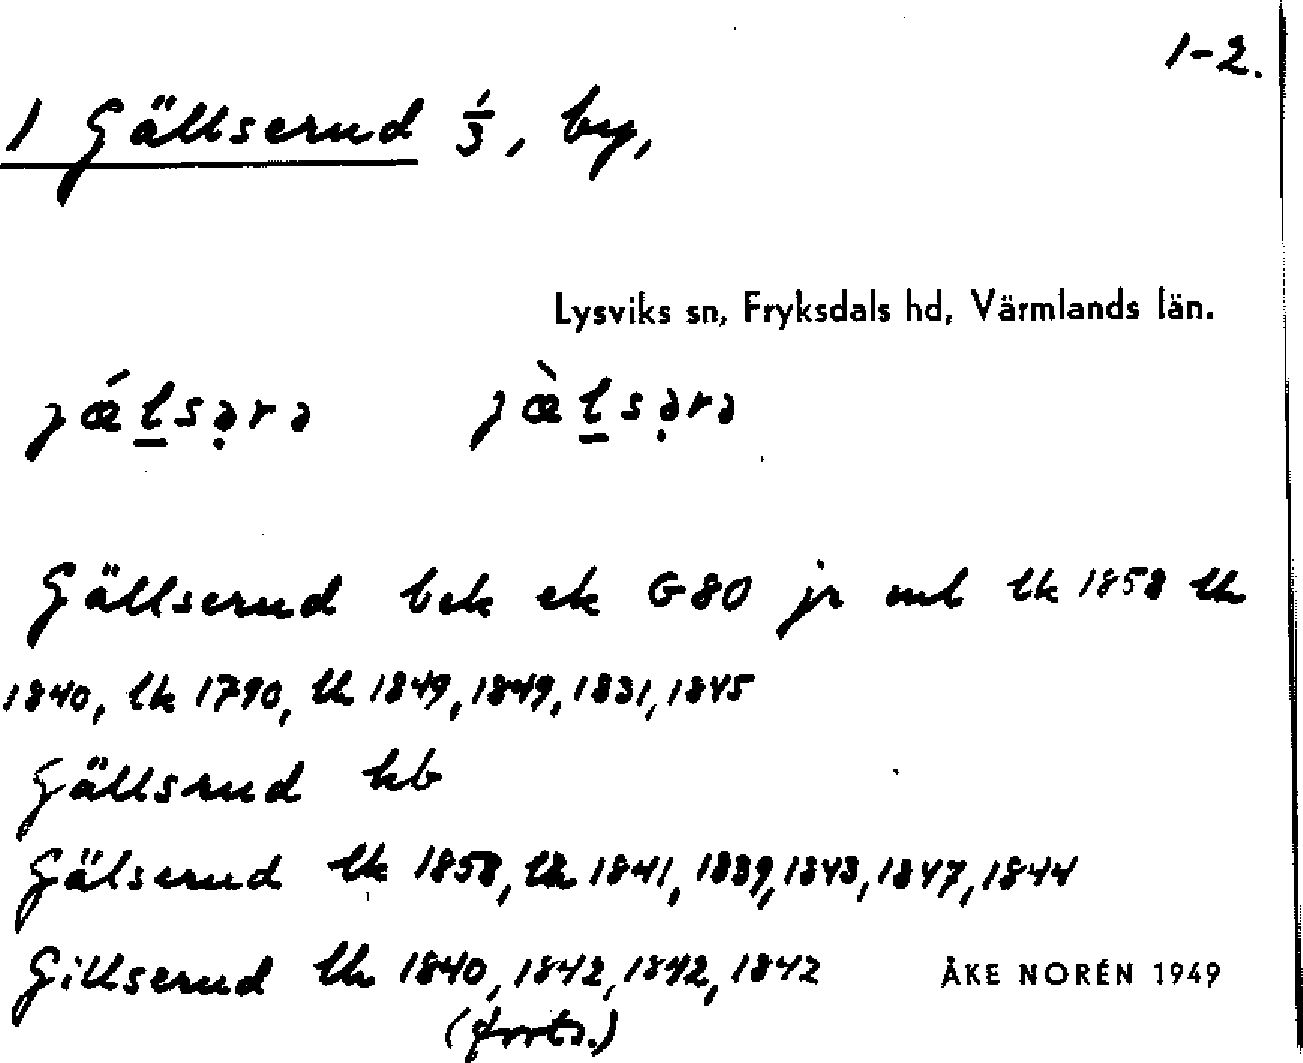 1-2.
1 Gällserud 1/3, by,
Lysviks sn, Fryksdals hd, Värmlands län.
jǽl̠sə̣rə jæ̀l̠sə̣rə
Gällserud bek ek G80 jr ml lk 1858 lh
1840, lk 1790, lh 1849, 1849, 1831, 1845
Gällsrud kb
Gälserud lk 1858, lh 1841, 1839, 1843, 1847, 1844
Gillserud lh 1840, 1842, 1842, 1842
ÅKE NORÉN 1949
(forts.)